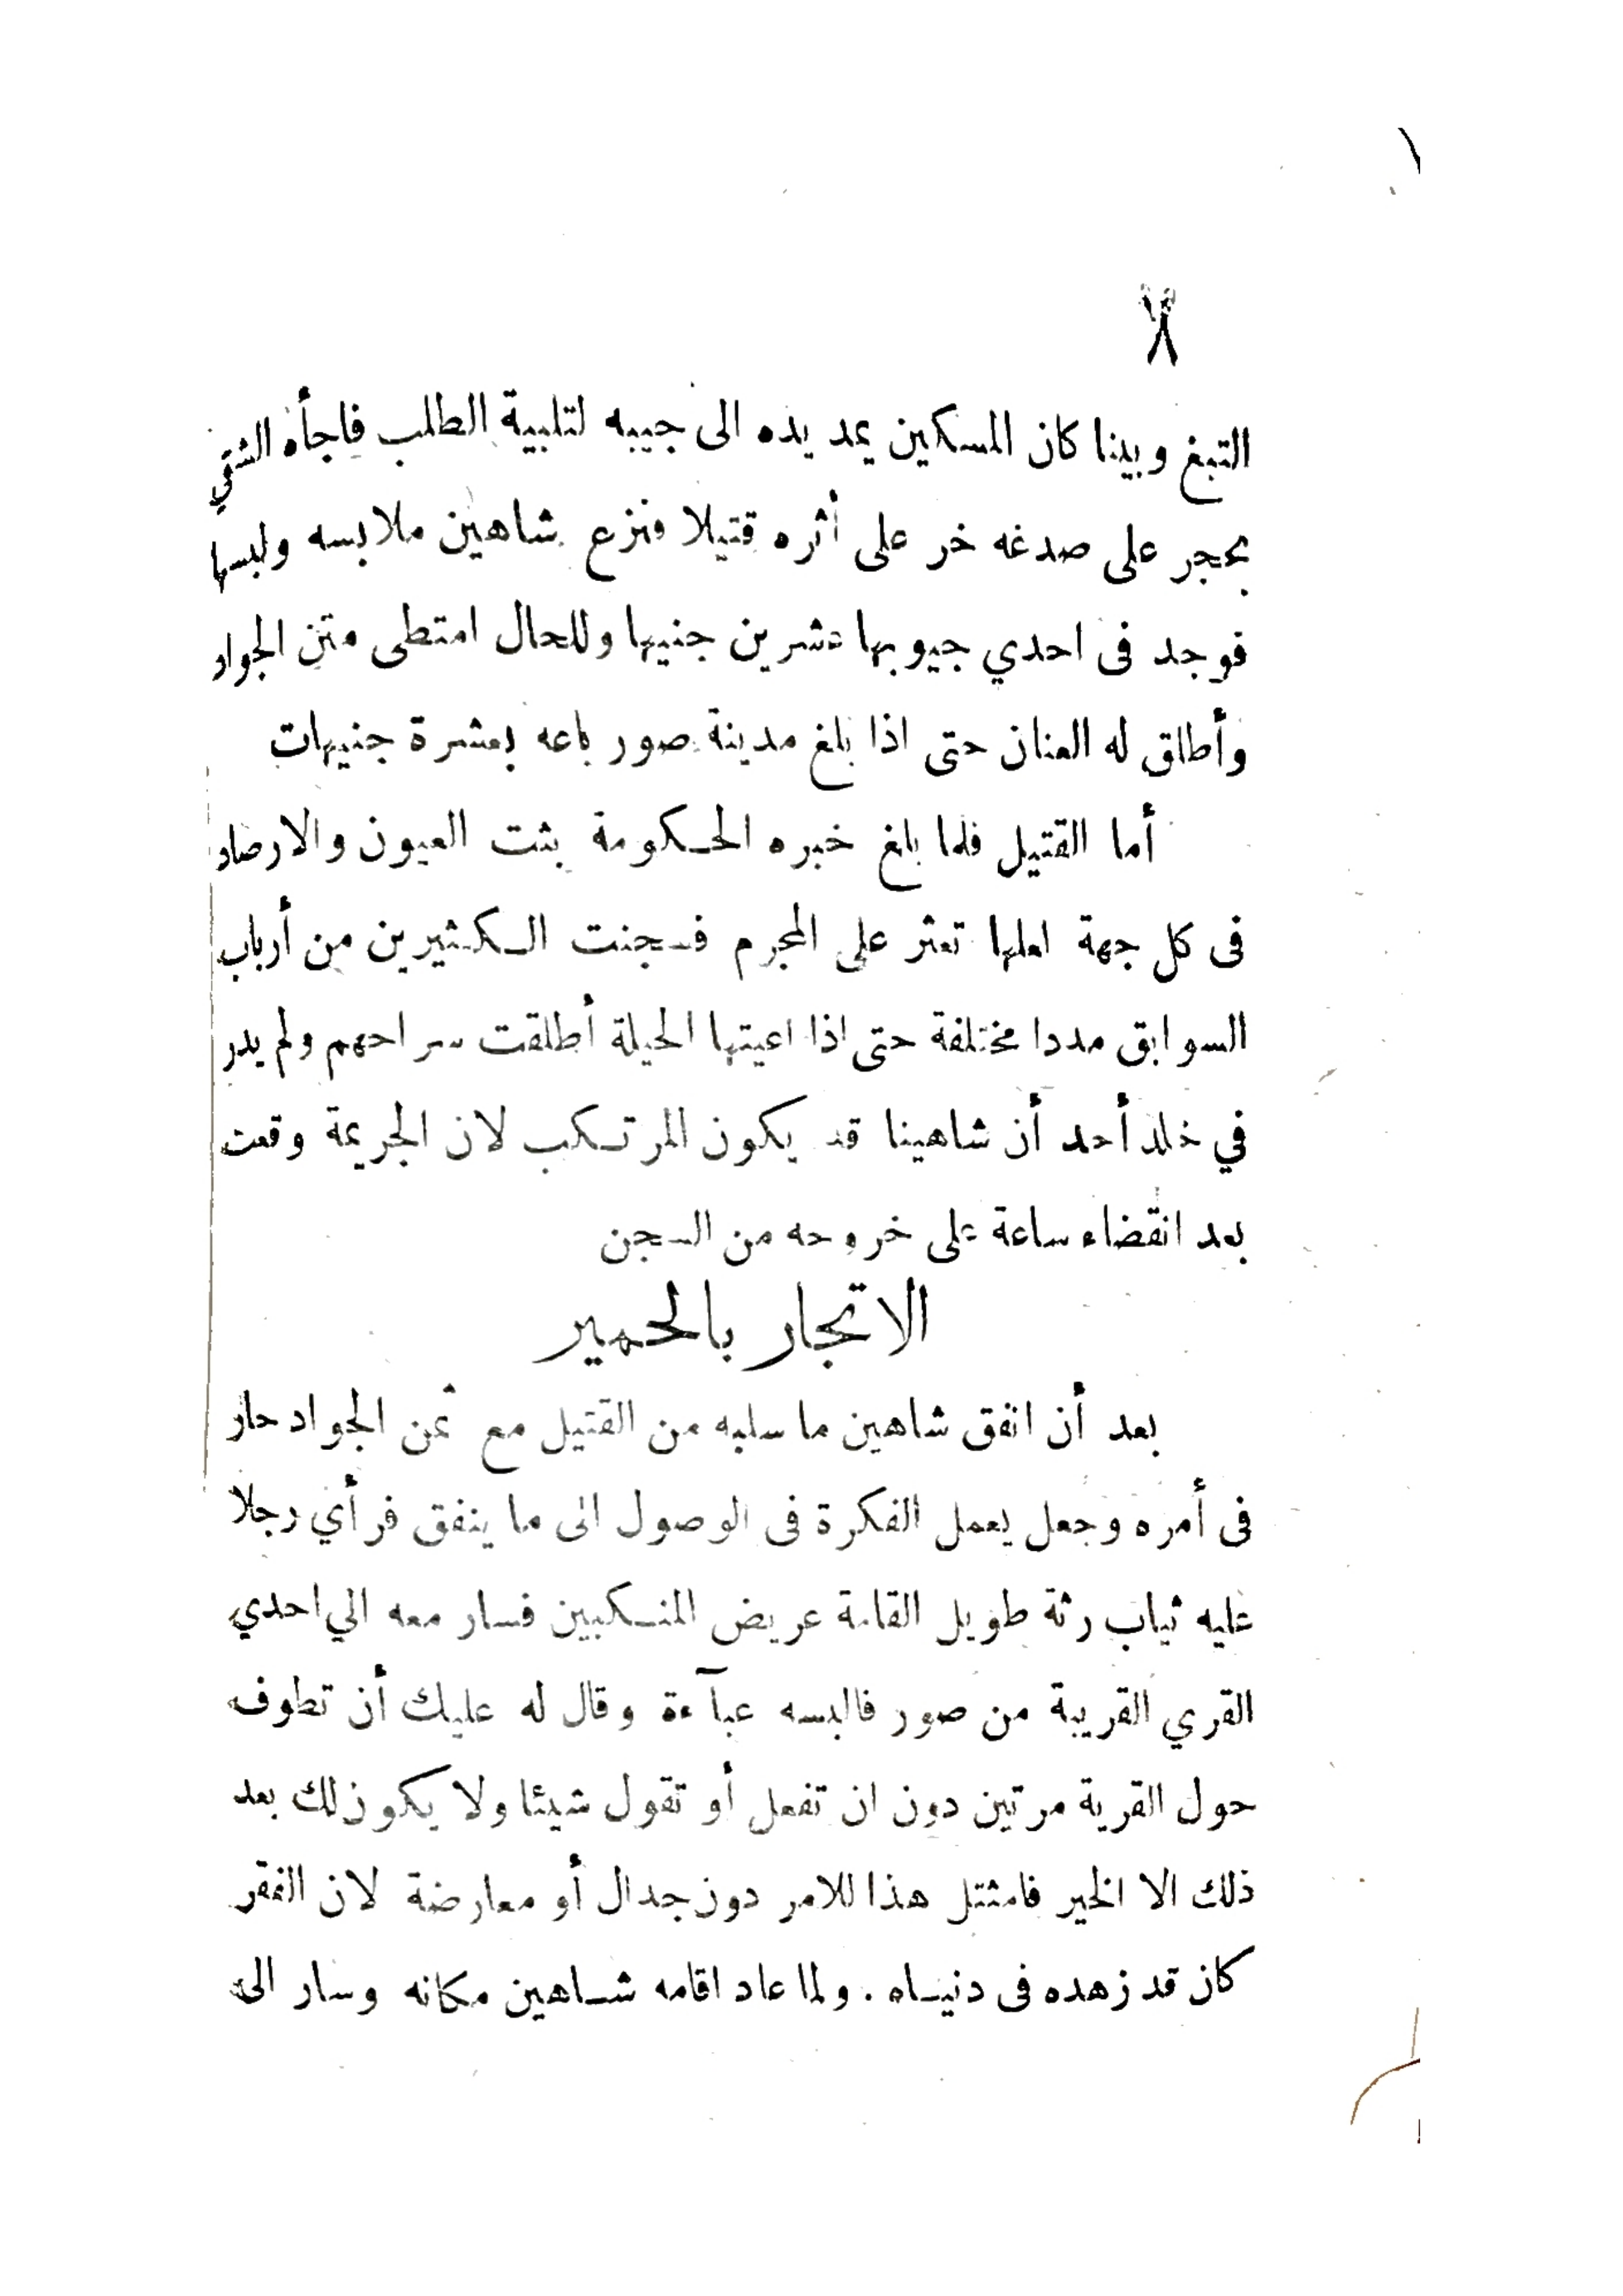 التبغ وبينا كان المسكين يمد يده الى جيبه لتلبية الطلب فاجأه الشقي
بحجر على صدغه خر على أثره قتيلا فنزع شاهين ملابسه ولبسها
فوجد فى احدي جيوبها عشرين جنيها وللحال امتطى متن الجواد
وأطلق له العنان حتى اذا بلغ مدينة صور باعه بعشرة جنيهات
أما القتيل فلما بلغ خبره الحكومة بثت العيون والارصاد
فى كل جهة لعلها تعثر على المجرم فسجنت الكثيرين من أرباب
السوابق مددا مختلفة حتى اذا اعيتها الحيلة أطلقت سراحهم ولم يدر
في خلد أحد أن شاهينا قد يكون المرتكب لان الجريمة وقعت
بعد انقضاء ساعة على خروجه من السجن
الاتجار بالحمير
بعد أن انفق شاهين ما سلبه من القتيل مع ثمن الجواد حار
فى أمره وجعل يعمل الفكرة فى الوصول الى ما ينفق فرأي رجلا
عليه ثياب رثة طويل القامة عريض المنكبين فسار معه الي احدي
القري القريبة من صور فالبسه عبآءة وقال له عليك أن تطوف
حول القرية مرتين دون ان تفعل أو تقول شيئا ولا يكون لك بعد
ذلك الا الخير فامتثل هذا للامر دون جدال أو معارضة لان الفقر
كان قد زهده فى دنياه . ولما عاد اقامه شاهين مكانه وسار الى